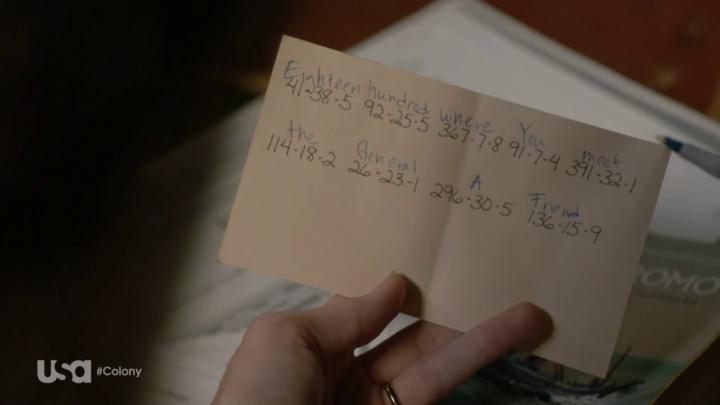 Eighteen hundred where You meet
41-38-5 92-25-5 367-7-8 91-7-4 391-32-1
the General A Friend
114-18-2 26-23-1 296-30-5 136-15-9
ROMO
usa #Colony